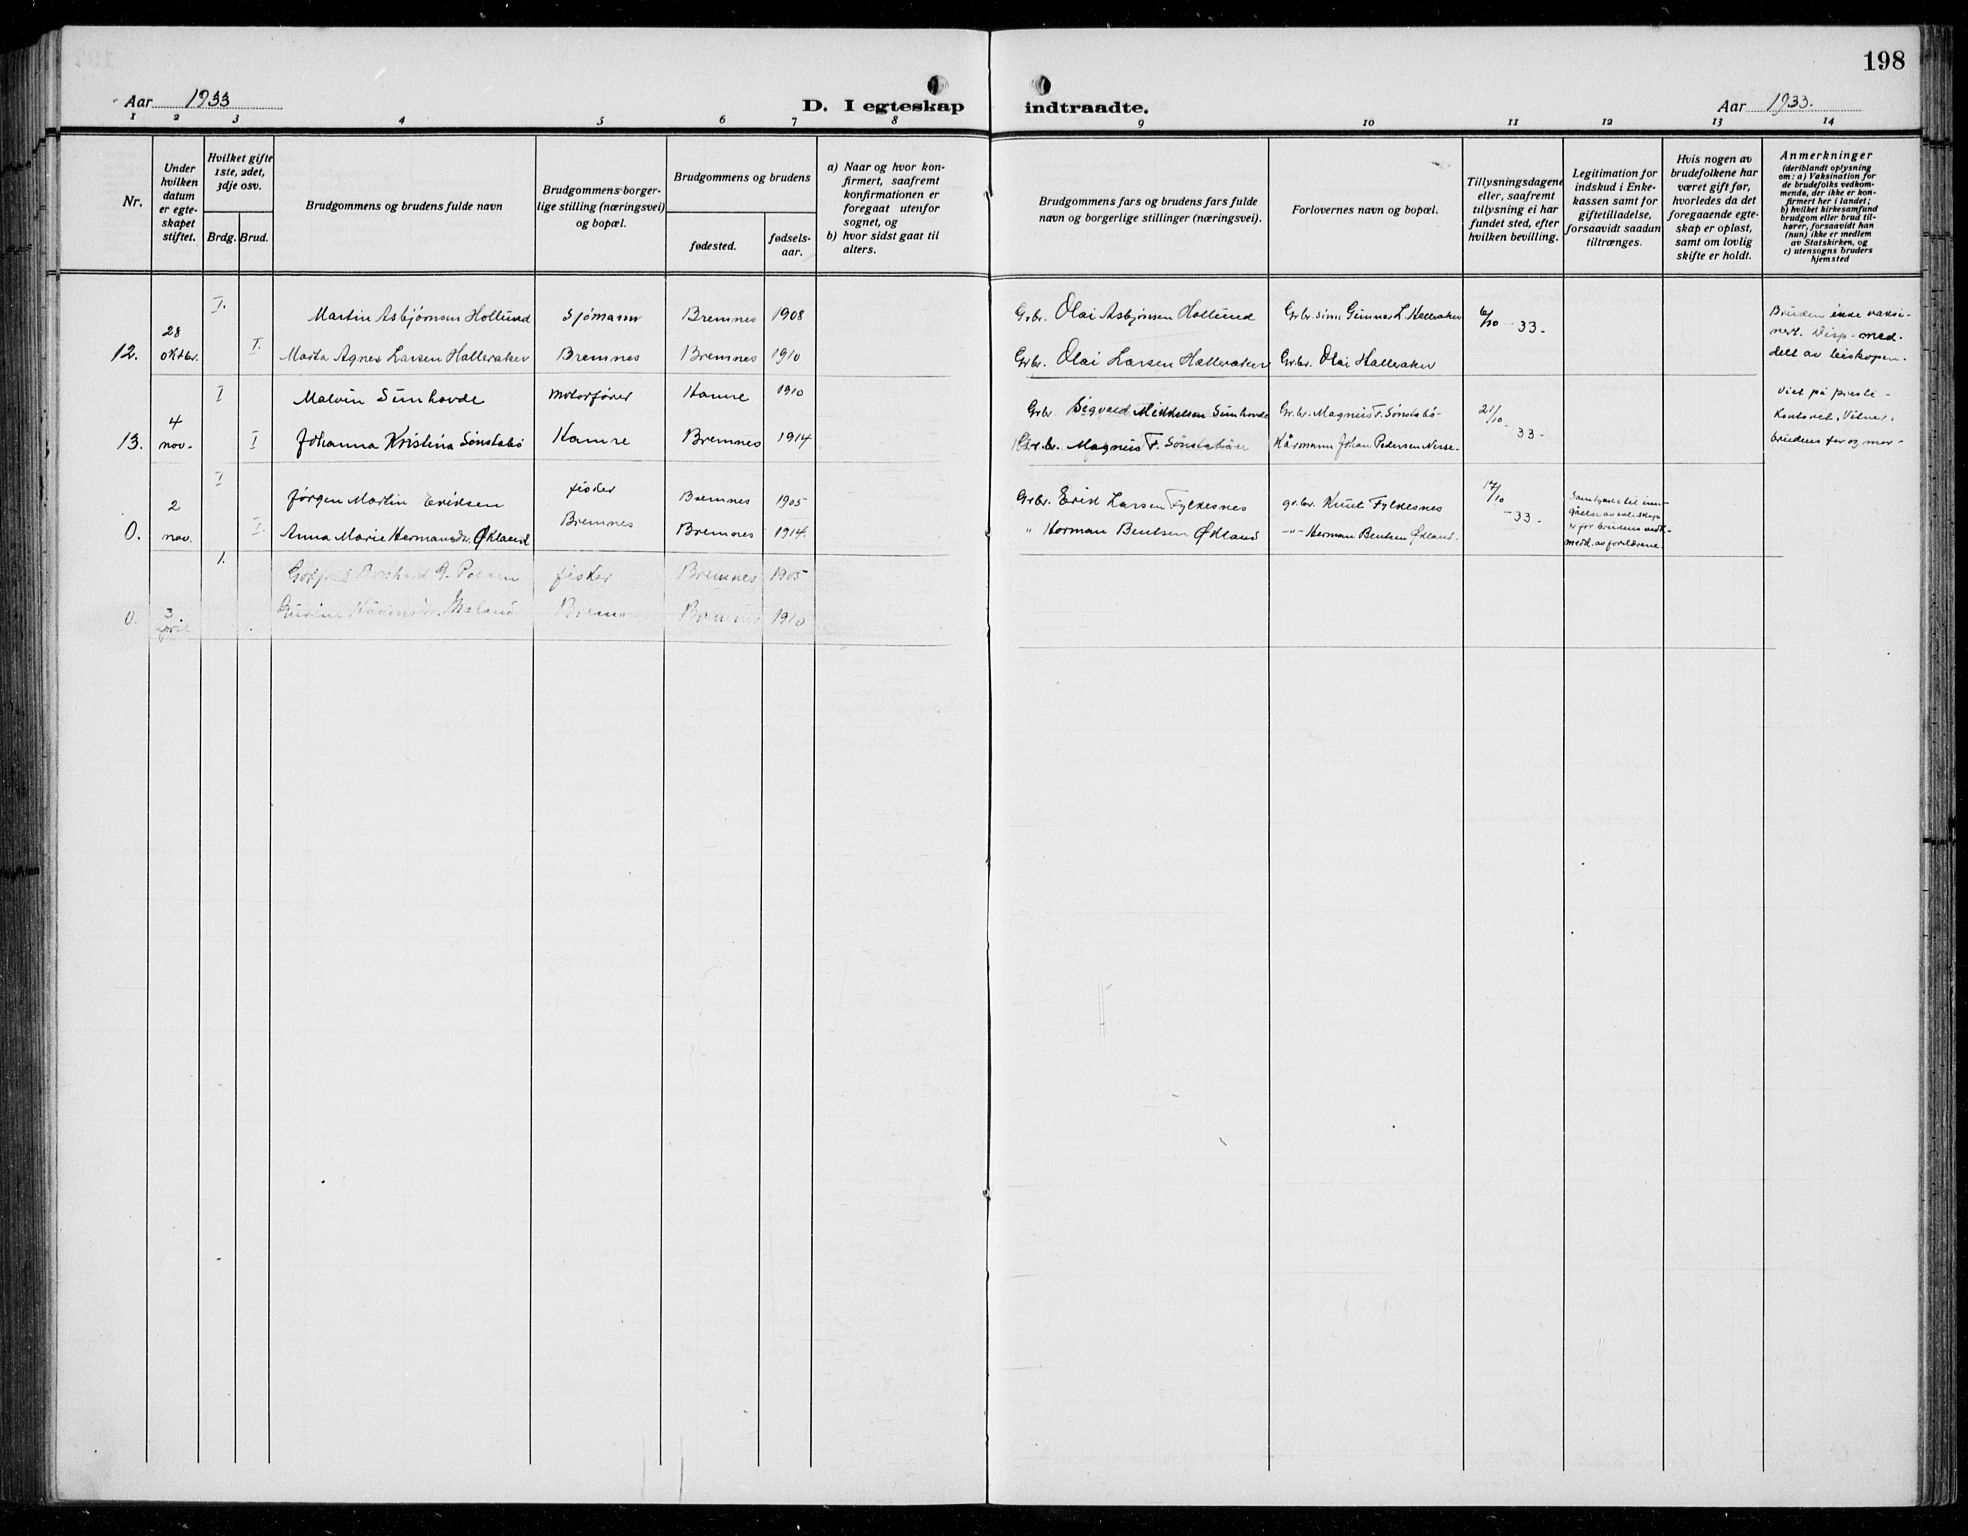 198
Aar 1933
D. I egteskap indtraadte.
Aar 1933.
1 2 3 4 5 6 7 8 9 10 11 12 13 14
Nr.
Under hvilken datum er egteskapet stiftet.
Hvilket gifte 1ste, 2det, 3dje osv.
Brdg. Brud.
Brudgommens og brudens fulde navn
Brudgommens borgerlige stilling (næringsvei) og bopæl.
Brudgommens og brudens
fødested.
fødselsaar.
a) Naar og hvor konfirmert, saafremt konfirmationen er foregaat utenfor sognet, og
b) hvor sidst gaat til alters.
Brudgommens fars og brudens fars fulde navn og borgerlige stillinger (næringsvei).
Forlovernes navn og bopæl.
Tillysningsdagene eller, saafremt tillysning ei har fundet sted, efter hvilken bevilling.
Legitimation for indskud i Enkekassen samt for giftetilladelse, forsaavidt saadan tiltrænges.
Hvis nogen av brudefolkene har været gift før, hvorledes da det foregaaende egteskap er opløst, samt om lovlig skifte er holdt.
Anmerkninger
(deriblandt oplysning om: a) Vaksination for de brudefolks vedkommende, der ikke er konfirmert her i landet; b) hvilket kirkesamfund brudgom eller brud tilhører, forsaavidt han (hun) ikke er medlem av Statskirken, og c) utensogns bruders hjemsted
I. Martin Asbjørnsen Hollund Sjømann Bremnes 1908 Grbr. Olai Asbjørnsen Hollund Grbr. sønn Gunnar L. Halleraker 6/10 - 33 - Bruden ikke vaksinert. Disp. meddelt av biskopen.
12. 28 oktbr. I. Marta Agnes Larsen Halleraker Bremnes Bremnes 1910 Grbr. Olai Larsen Halleraker Grbr. Olai Halleraker
I Malvin Simhovde motorfører Hamre 1910 Grbr Sigvald Mikkelsen Simhovde Gr.br. Magnus F. Sønstabø 21/10 - 33 - Viet på prestekontoret. Vitner brudens far og mor -
13. 4 nov. I Johanna Kristina Sønstabø Hamre Bremnes 1914 Gr.br. Magnus F. Sønstabø Johan Pedersen
I Jørgen Martin Eriksen fisker Bremnes 1905 Grbr. Erik Larsen Fylkesnes gr.br. Knut Fylkesnes 17/10 - 33 - Samtykke til inngåelse av ekteskap er for brudens vedk. medd. av foreldrene.
0. 2 nov. I. Anna Marie Hermansdr. Økland Bremnes Bremnes 1914. " Herman Bentsen Økland -"- Herman Bentsen Økland.
1. G. fisker Bremnes 1905
0. 3. april Bremnes Bremnes 1910